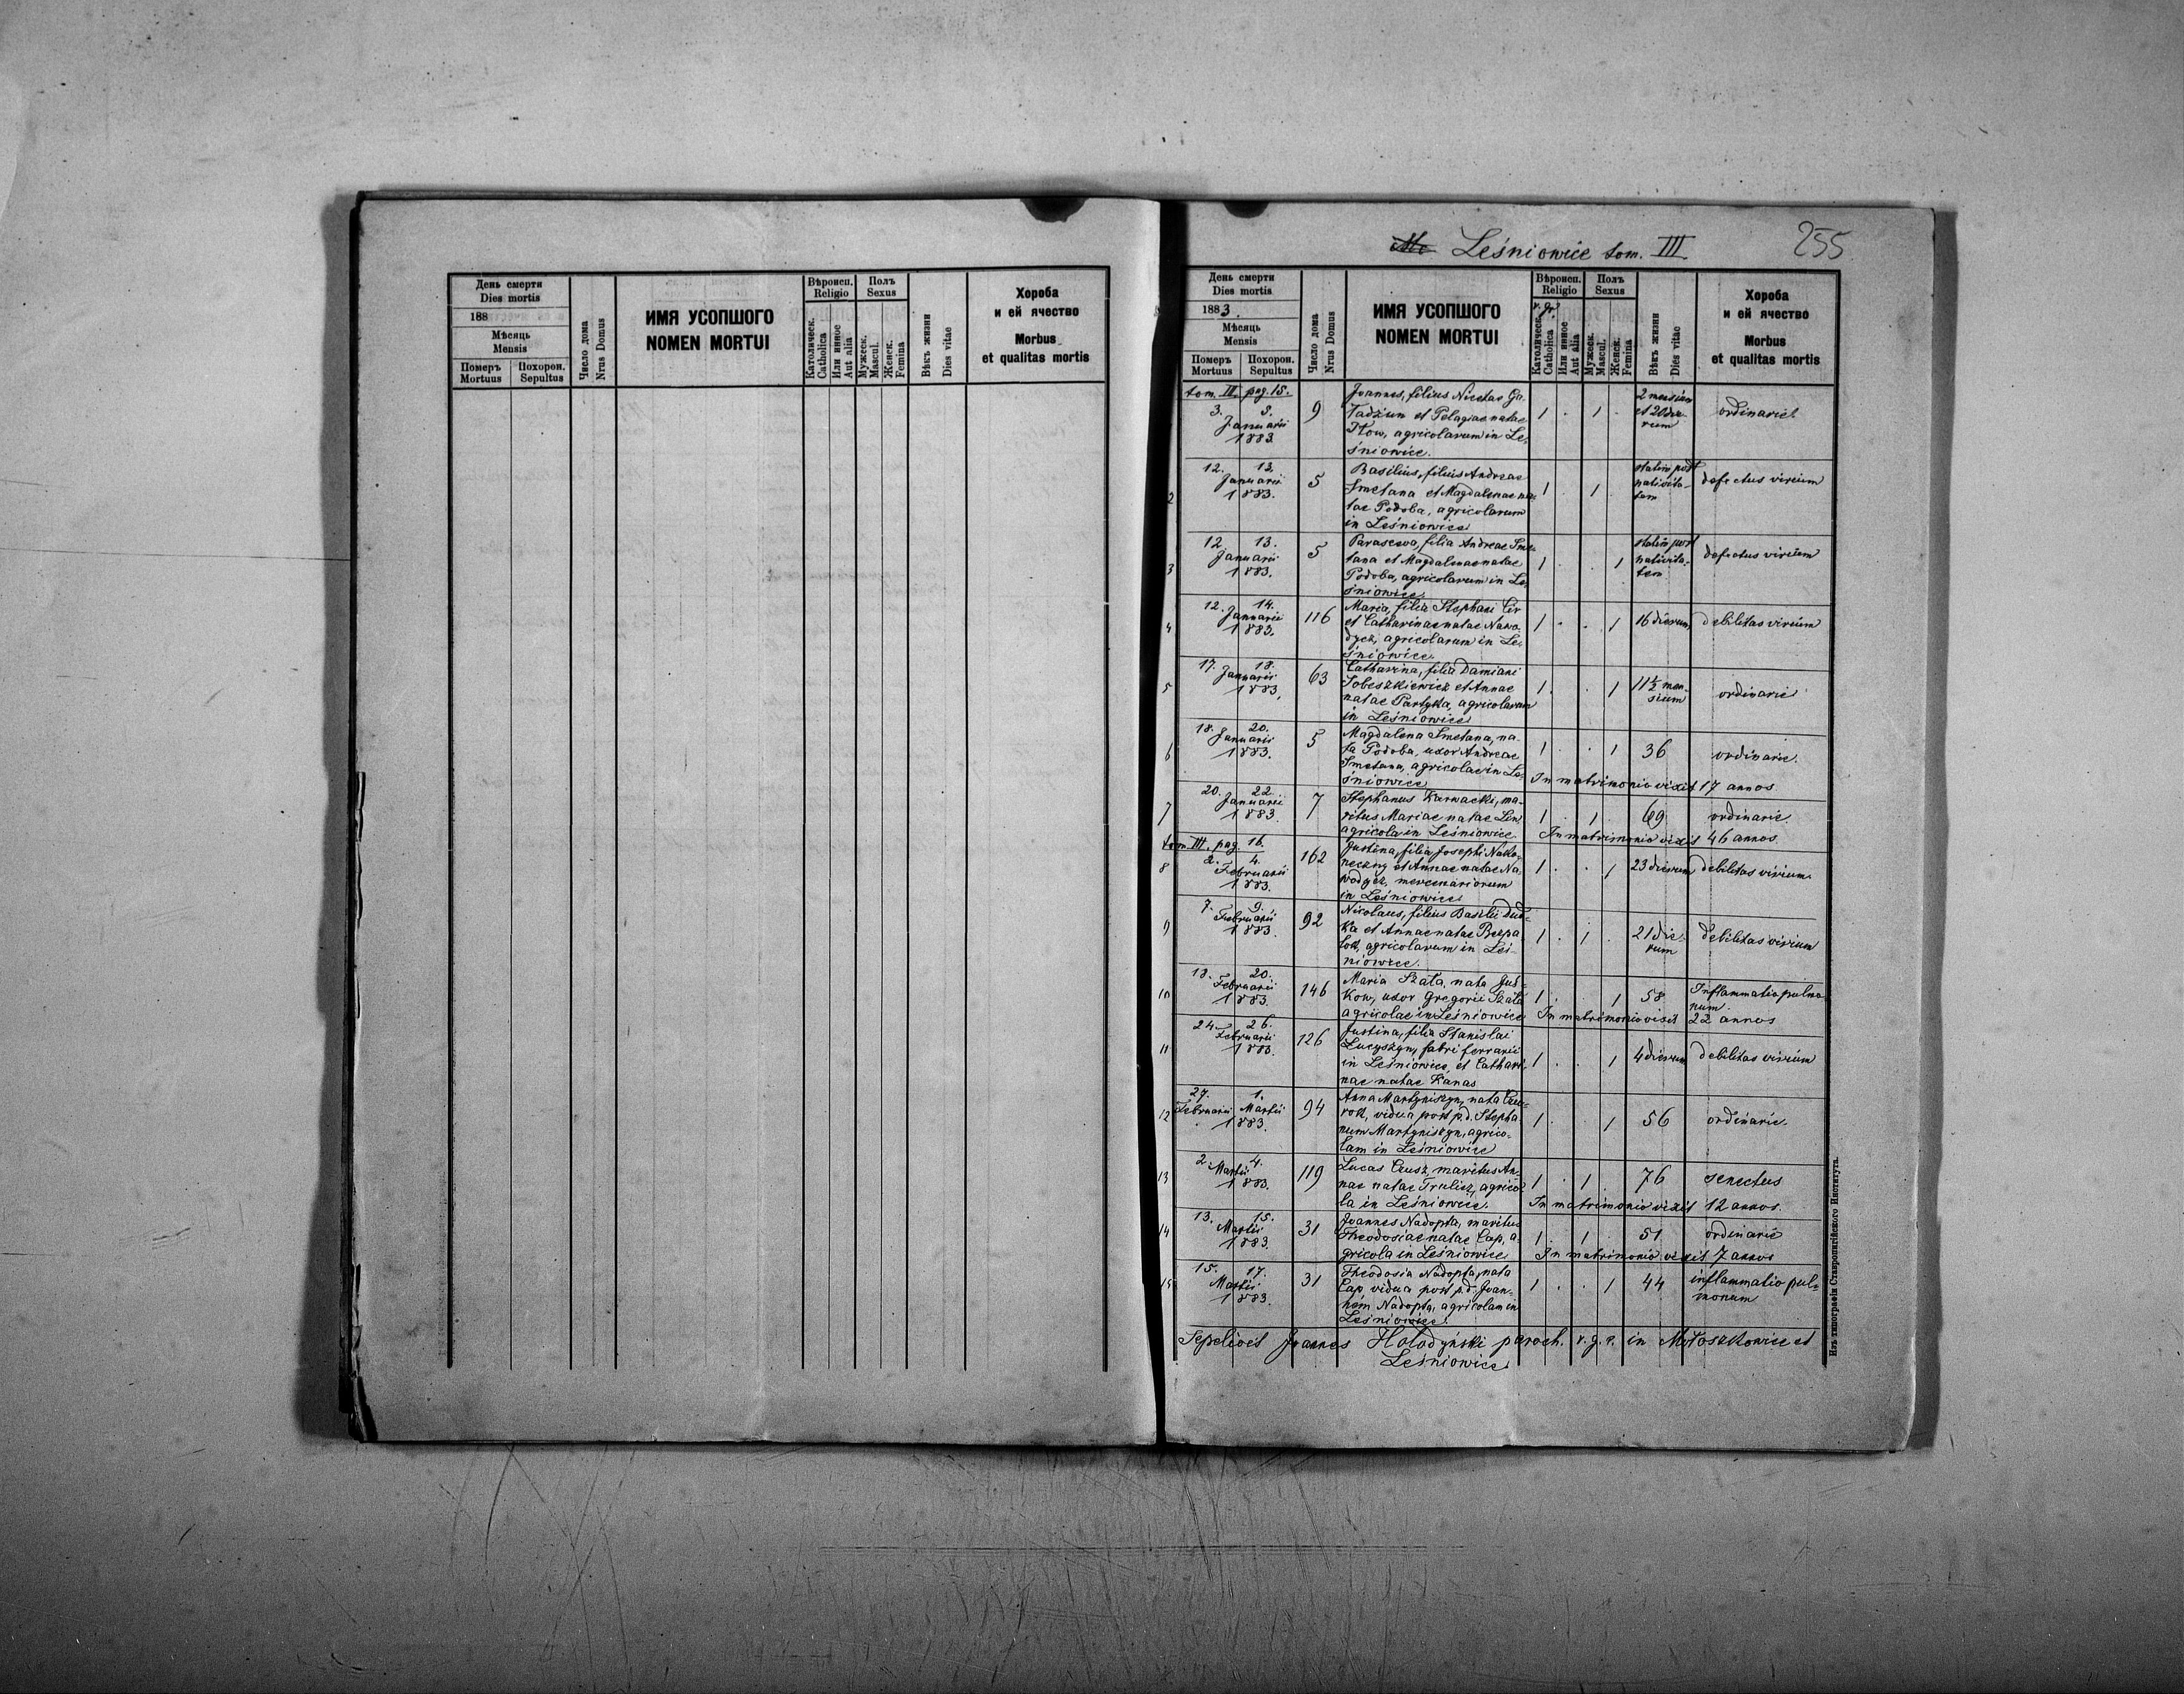 День смерти
Dies mortis
188
Мѣсяць
Mensis
Померъ
Mortuus
Похорон.
Sepultus
Число дома
Nrus Domus
ИМЯ УСОПШОГО
NOMEN MORTUI
Вѣроисп.
Religio
Католическ.
Catholica
Или инное
Aut alia
Полъ
Sexus
Мужеск.
Mascul.
Женск.
Femina
Вѣкъ жизни
Dies vitae
Хороба
и ей ячество
Morbus
et qualitas mortis
Leśniowice tom. III.
255
День смерти
Dies mortis
1883.
Мѣсяць
Mensis
Померъ
Mortuus
Похорон.
Sepultus
Число дома
Nrus Domus
ИМЯ УСОПШОГО
NOMEN MORTUI
Вѣроисп.
Religio
r. gr.
Католическ.
Catholica
Или инное
Aut alia
Полъ
Sexus
Мужеск.
Mascul.
Женск.
Femina
Вѣкъ жизни
Dies vitae
Хороба
и ей ячество
Morbus
et qualitas mortis
tom. III. pag. 15.
3.
Januarii
1883.
9
Joannes, filius Nicetae
et Pelagiae natae
agricolarum in Le-
śniowice.
1 . 1 .
2 mensium
et 20 die-
rum
ordinarie
2
12. 13.
Januarii
1883.
5
Basilius, filius Andreae
Smetana et Magdalenae na-
tae Podoba, agricolarum
in Leśniowice
1 . 1 .
statim post
nativita-
tem
defectus virium
3
12. 13.
Januarii
1883.
5
Parascewa, filia Andreae Sme-
tana et Magdalenae natae
Podoba, agricolarum in Le-
śniowice.
1 . . 1
statim post
nativita-
tem
defectus virium
4
12. 14.
Januarii
1883.
116
Maria, filia Stephani Cir
et Catharinae natae Nawo-
dycz, agricolarum in Le-
śniowice.
1 . . 1
16 dierum
debilitas virium
5
17. 18.
Januarii
1883.
63
Catharina, filia Damiani
Sobeszkiewicz et Annae
natae Partyka, agricolarum
in Leśniowice
1 . . 1
11½ men-
sium
ordinarie
6
18. 20.
Januarii
1883.
5
Magdalena Smetana, na-
ta Podoba, uxor Andreae
Smetana, agricolae in Le-
śniowice
1 . . 1
36
ordinarie.
In matrimonio vixit 17 annos.
7
20. 22.
Januarii
1883.
7
Stephanus Karwacki, ma-
ritus Mariae natae Len
agricola in Leśniowice
1 . 1 .
69
ordinarie
In matrimonio vixit 46 annos.
tom. III. pag. 16.
8
2. 4.
Februarii
1883.
162
Justina, filia Josephi Nako-
neczny et Annae natae Na-
wodycz, mercenariorum
in Leśniowice
1 . . 1
23 dierum
debilitas virium
9
7. 9.
Februarii
1883.
92
Nicolaus, filius Basilii Dud-
ka et Annae natae
agricolarum in Leś-
niowice.
1 . 1 .
21 die-
rum
debilitas virium
10
18. 20.
Februarii
1883.
146
Maria Szata, nata Jus-
kow, uxor Gregorii Szata
agricolae in Leśniowice
1 . . 1
58
Inflammatio pulmo-
num.
In matrimonio vixit 22 annos
11
24. 26.
Februarii
1883.
126
Justina, filia Stanislai
Lucyszyn, fabri ferrarii
in Leśniowice, et Cathari-
nae natae Kanas
1 . . 1
4 dierum
debilitas virium
12
27. 1.
Februarii Martii
1883.
94
Anna Martyniszyn, nata
vidua post p.d. Stepha-
num Martyniszyn, agrico-
lam in Leśniowice
1 . . 1
56
ordinarie.
13
2. 4.
Martii
1883.
119
Lucas Czusz, maritus An-
nae natae Trulicz, agrico-
la in Leśniowice.
1 . 1 .
76
senectus
In matrimonio vixit 12 annos.
14
13. 15.
Martii
1883.
31
Joannes Nadopta, maritus
Theodosiae natae Cap, a-
gricola in Leśniowice
1 . 1 .
51
ordinarie
In matrimonio vixit 7 annos
15
15. 17.
Martii
1883.
31
Theodosia Nadopta, nata
Cap vidua post p.d. Joan-
nem Nadopta, agricolam in
Leśniowice.
1 . . 1
44
inflammatio pul-
monum
Sepelivit Joannes Hołodyński paroch. r. g. c. in Mytoszkowice et
Leśniowice
Изъ типографіи Ставропигійского Института.